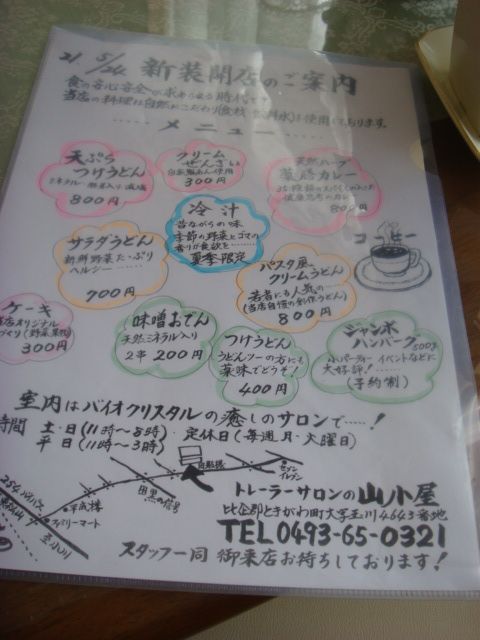 21. 5/24 新装開店のご案内
食の安心安全が求められる時代です
当店の料理は自然にこだわり食材・飲料水に使用しております。
…… メニュー ……
天ぷら
つけうどん
800円
クリーム
ぜんざい
300円
天然ハーブ
薬膳カレー
800円
冷汁
昔ながらの味
季節の野菜とゴマの
香りが食欲を……
夏季限定
コーヒー
サラダうどん
新鮮野菜たっぷり
ヘルシー ……
700円
パスタ風
クリームうどん
若者にも人気の
(当店自慢の創作うどん)
800円
ケーキ
店オリジナル
づくり(野菜果物)
300円
味噌おでん
天然ミネラル入り
2串 200円
つけうどん
うどんツーの方にも
薬味でどうぞ!
400円
ジャンボ
ハンバーグ 500g
小パーティー イベントなどに
大好評!……
(予約制)
室内はバイオクリスタルの癒しのサロンで……!
時間 土・日(11時〜8時)・定休日(毎週月・火曜日)
平日(11時〜3時)
セブン
イレブン
254バイパス
ファミリーマート
トレーラーサロンの山小屋
比企郡ときがわ町大字玉川4643番地
TEL0493-65-0321
スタッフ一同 御来店お待ちしております!